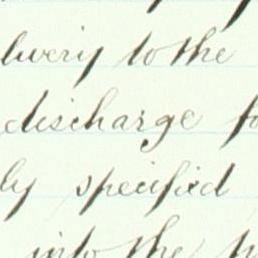 livery to the
discharge fo
ly specified
into the p